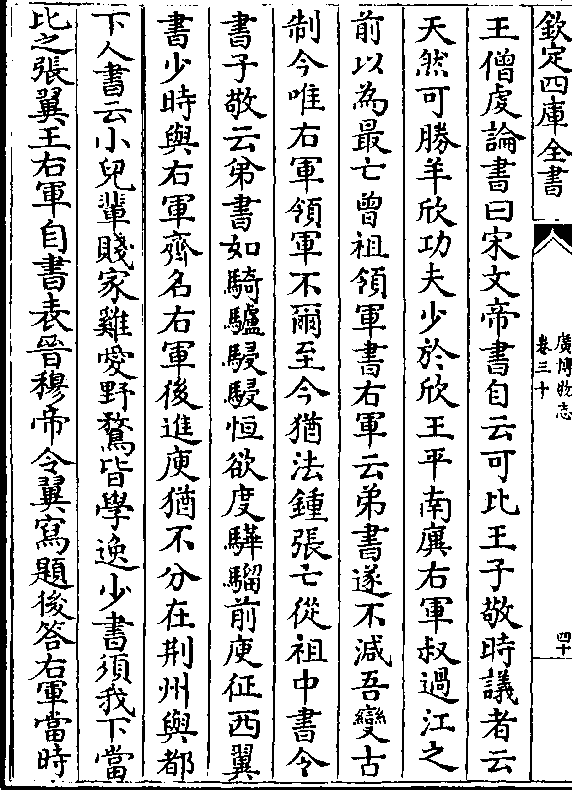 欽定四庫全書
廣博物志
卷三十
四十
王僧虔論書曰宋文帝書自云可比王子敬時議者云
天然可勝羊欣功夫少於欣王平南廙右軍叔過江之
前以為最亡曾祖領軍書右軍云弟書遂不減吾變古
制今唯右軍領軍不爾至今猶法鍾張亡從祖中書令
書子敬云弟書如騎驢駸駸恒欲度驊騮前庾征西翼
書少時與右軍齊名右軍後進庾猶不分在荆州與都
下人書云小兒輩賤家雞愛野鶩皆學逸少書須我下當
比之張翼王右軍自書表晉穆帝令翼寫題後答右軍當時